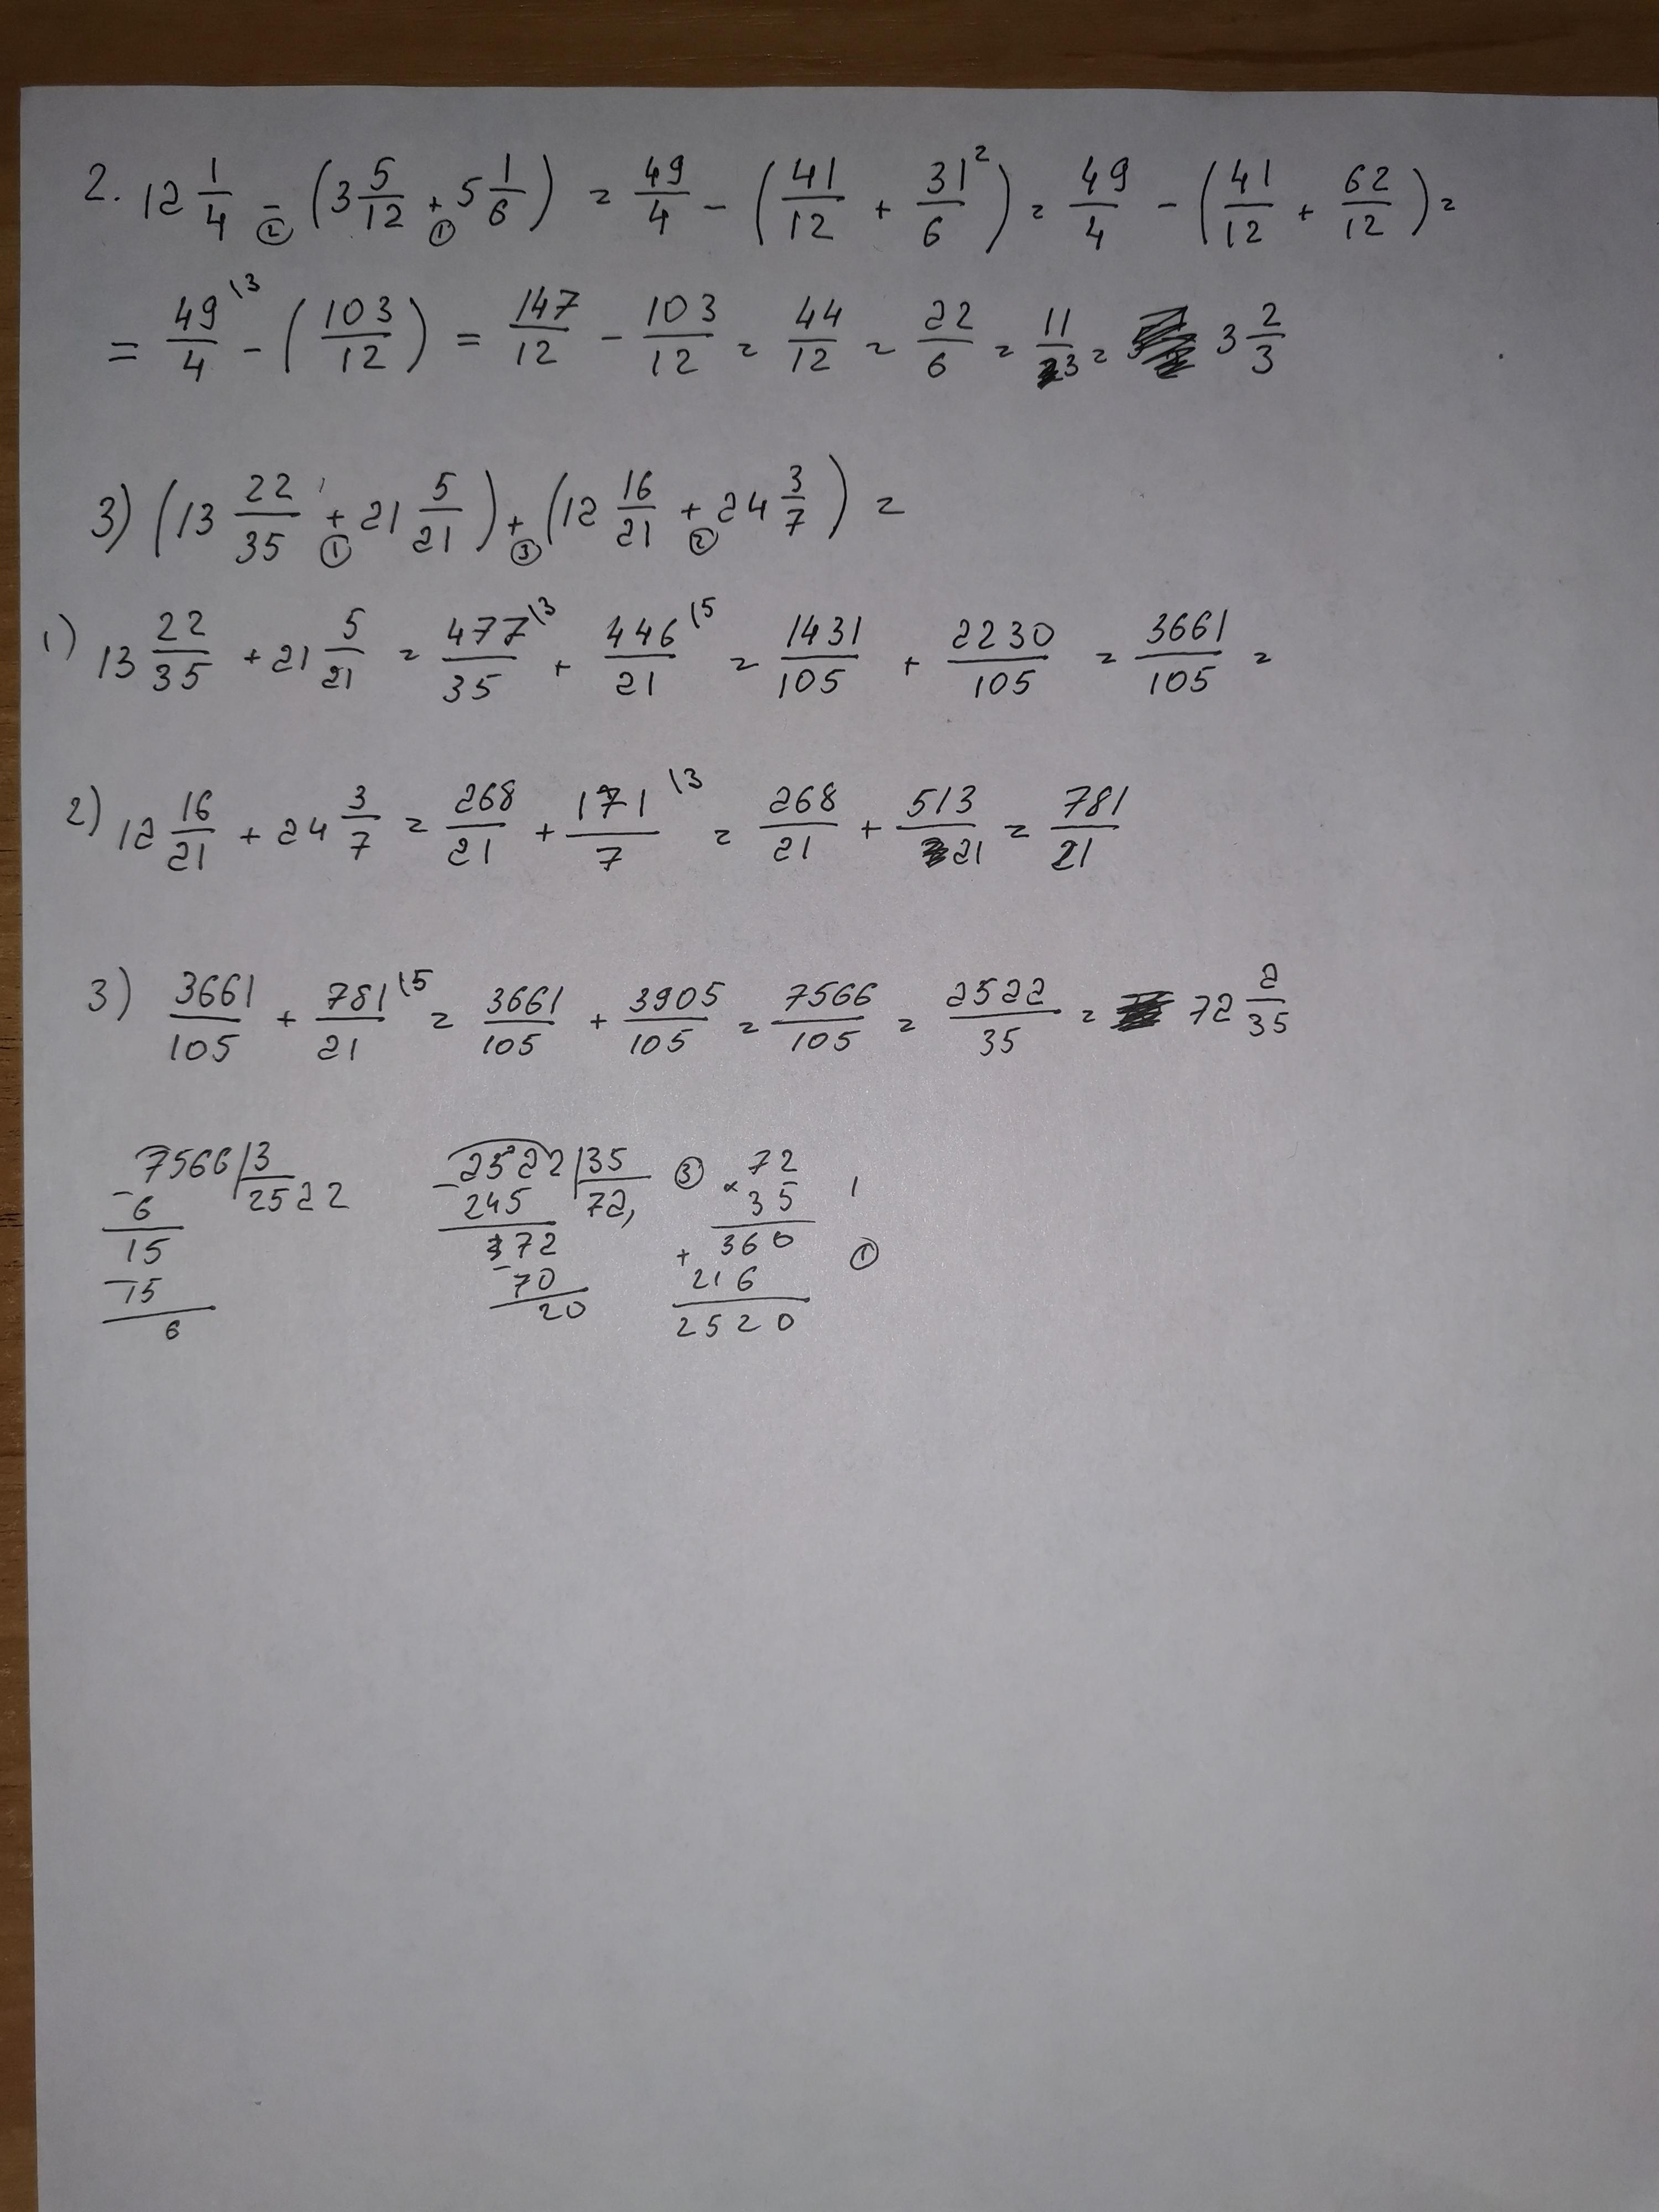 2. 12 1/4 - (3 5/12 + 5 1/6) = 49/4 - (41/12 + 31/6 2) = 49/4 - (41/12 + 62/12) =
② ①
= 49/4 \3 - (103/12) = 147/12 - 103/12 = 44/12 = 22/6 = 11/3 = 3 2/3
3) (13 22/35 + 21 5/21) + (12 16/21 + 24 3/7) =
① ③ ②
1) 13 22/35 + 21 5/21 = 477/35 \3 + 446/21 \5 = 1431/105 + 2230/105 = 3661/105 =
2) 12 16/21 + 24 3/7 = 268/21 + 171/7 \3 = 268/21 + 513/21 = 781/21
3) 3661/105 + 781/21 \5 = 3661/105 + 3905/105 = 7566/105 = 2522/35 = 72 2/35
7566 | 3
- 6 2522
15
- 15
6
2522 | 35
- 245 72,
72
- 70
20
③ 72
× 35 1
360 ①
+ 216
2520